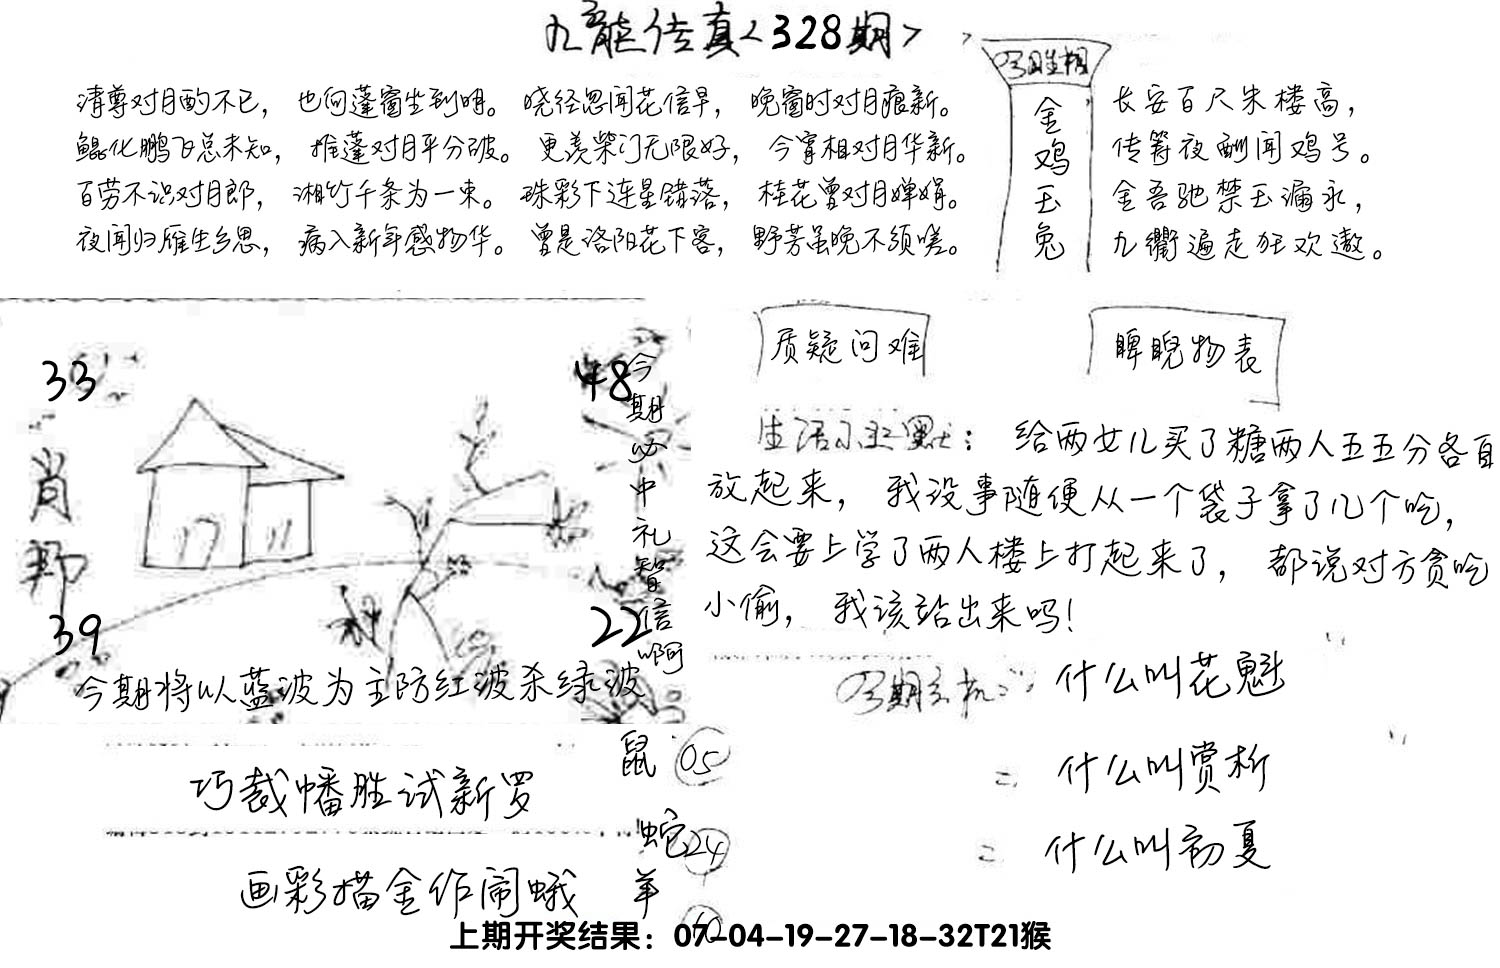 九龍传真<328期>
清尊对月酌不已，也向蓬窗坐到明。晓径忽闻花信早，晚窗时对月痕新。
鲲化鹏飞总未知，推蓬对月平分破。更羡柴门无限好，今宵相对月华新。
百劳不识对月郎，湘竹千条为一束。珠彩下连星错落，桂花曾对月婵娟。
夜闻归雁生乡思，病入新年感物华。曾是洛阳花下客，野芳虽晚不须嗟。
金鸡玉兔
长安百尺朱楼高，
传筹夜酬闻鸡号。
金吾驰禁玉漏永，
九衢遍走狂欢遨。
33
48
肖
39
22
今期必中礼智信啊
今期将以蓝波为主防红波杀绿波
质疑问难
睥睨物表
生活小幽默：给两女儿买了糖两人五五分各自
放起来，我没事随便从一个袋子拿了几个吃，
这会要上学了两人楼上打起来了，都说对方贪吃
小偷，我该站出来吗！
今期玄机：什么叫花魁
什么叫赏析
什么叫初夏
巧裁幡胜试新罗
画彩描金作闹蛾
鼠 05
蛇 24
羊
上期开奖结果：07-04-19-27-18-32T21猴